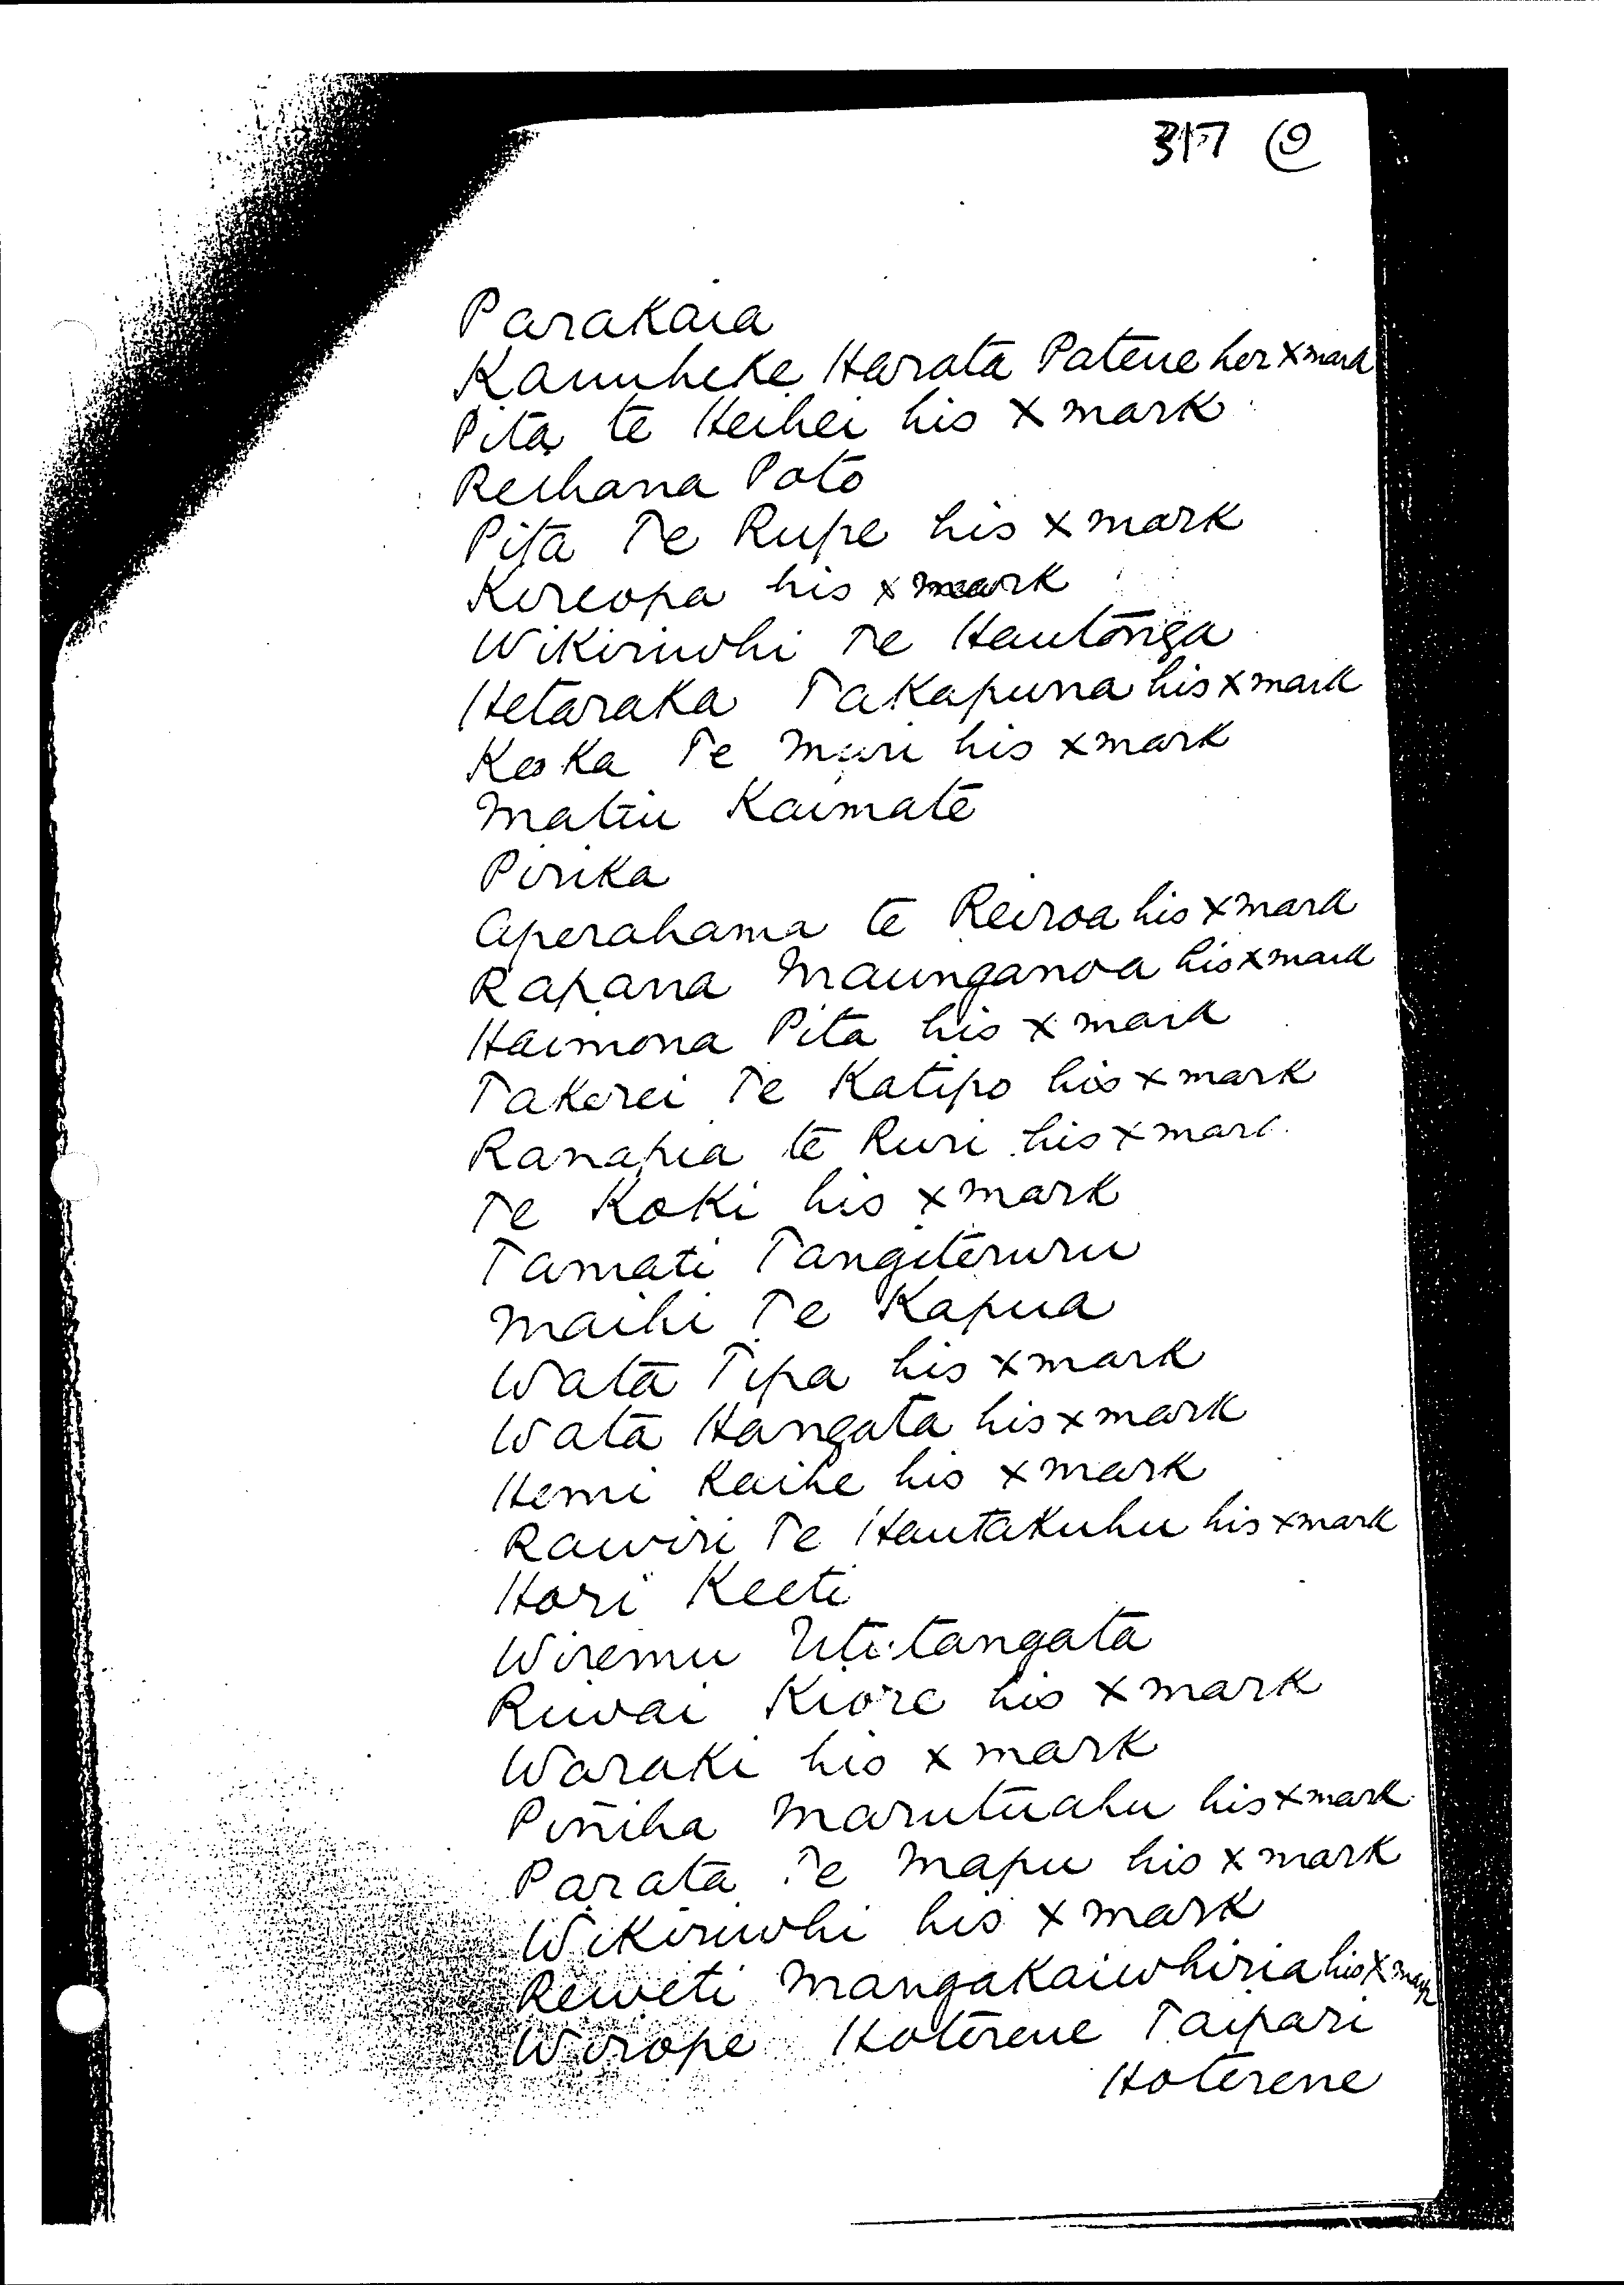 317 9
Parakaia
Kauuheke Harata Patene her x mark
Pita te Heihei his x mark
Reihana Poto
Pita Te Rupe his x mark
Kereopa his x mark
Wikiriwhi Te Hautonga
Hetaraka Takapuna his x mark
Keoka Te Muri his x mark
Matiu Kaimate
Pirika
Aperahama te Reiroa his x mark
Rapana Maunganoa his x mark
Haimona Pita his x mark
Takerei Te Katipo his x mark
Ranapia te Ruri his x mark
Te Koki his x mark
Tamati Tangiteruru
Maihi Te Kapua
Wata Tipa his x mark
Wata Hangata his x mark
Hemi Kaihe his x mark
Rawiri Te Hautakuhu his x mark
Hori Keeti
Wiremu Utitangata
Riwai Kiore his x mark
Waraki his x mark
Piniha Marutuahu his x mark
Parata Te Mapu his x mark
Wikiriwhi his x mark
Reweti Mangakaiwhiria his x mark
Wirope Hoterene Taipari
Hoterene